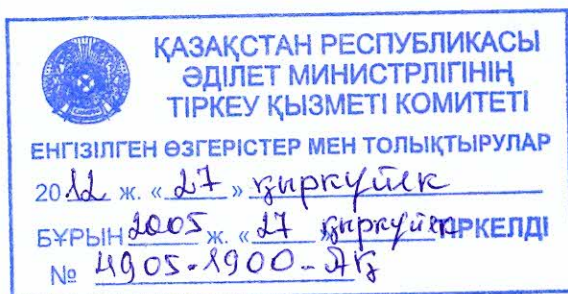 ҚАЗАҚСТАН РЕСПУБЛИКАСЫ
ӘДІЛЕТ МИНИСТРЛІГІНІҢ
ТІРКЕУ ҚЫЗМЕТІ КОМИТЕТІ
ЕНГІЗІЛГЕН ӨЗГЕРІСТЕР МЕН ТОЛЫҚТЫРУЛАР
2012 ж. «27» қыркүйек
БҰРЫН 2005 ж. «27 қыркүйек ТІРКЕЛДІ
№ 4905-1900-АҚ